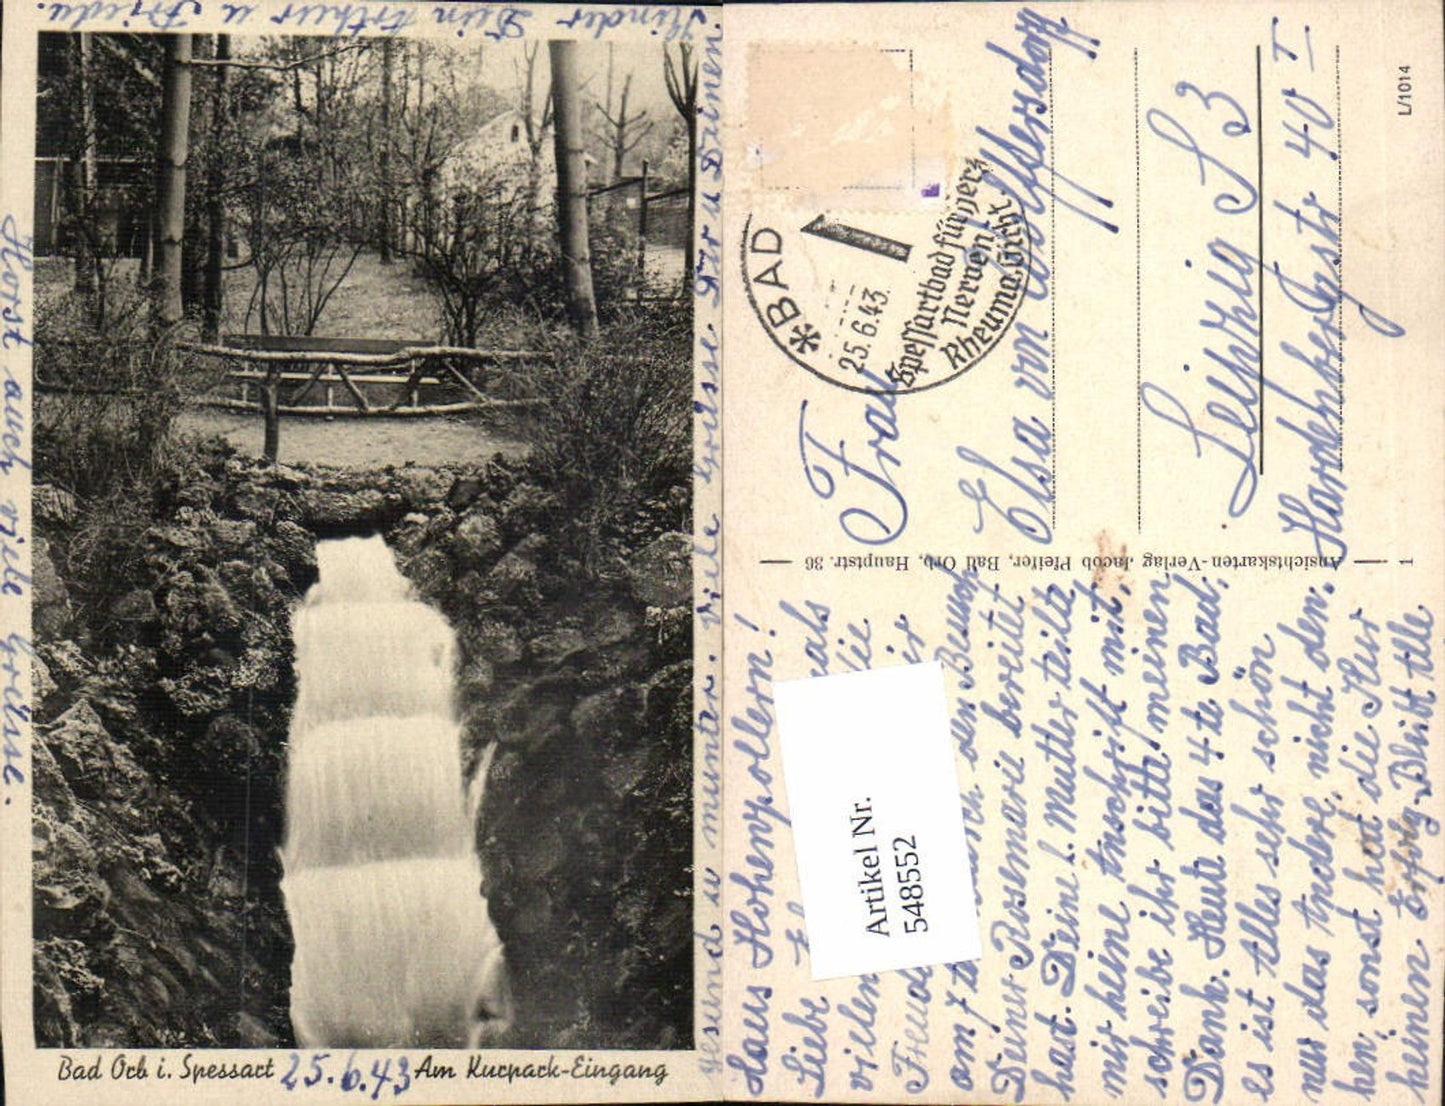 Kinder Dein Arthur u Frieda.
Horst auch viele Grüsse.
Bad Orb i. Spessart 25.6.43 Am Kurpark-Eingang
gesund u munter. viele Grüsse
Haus Hohenzollern!
Liebe
vielen
am 7 den Besuch
Deiner Rosemarie bereitet
hast. Deine l. Mutter teilt
mir keine Anschrift mit,
schreibe ihr bitte meinen
Dank. Heute das 4te Bad.
es ist Alles sehr schön
nur das Andere, nicht den-
ken sonst hat die Kur
keinen Erfolg. Bleibt Alle
Ansichtskarten-Verlag Jacob Pfeifer, Bad Orb, Hauptstr. 36
1
BAD
25.6.43.
Spessartbad für Herz
Nerven
Rheuma, Gicht
Frau
Elsa von Wolffersdorff
Leipzig S 3
Hardenbergstr 40 I
L/1014
Artikel Nr.
548552